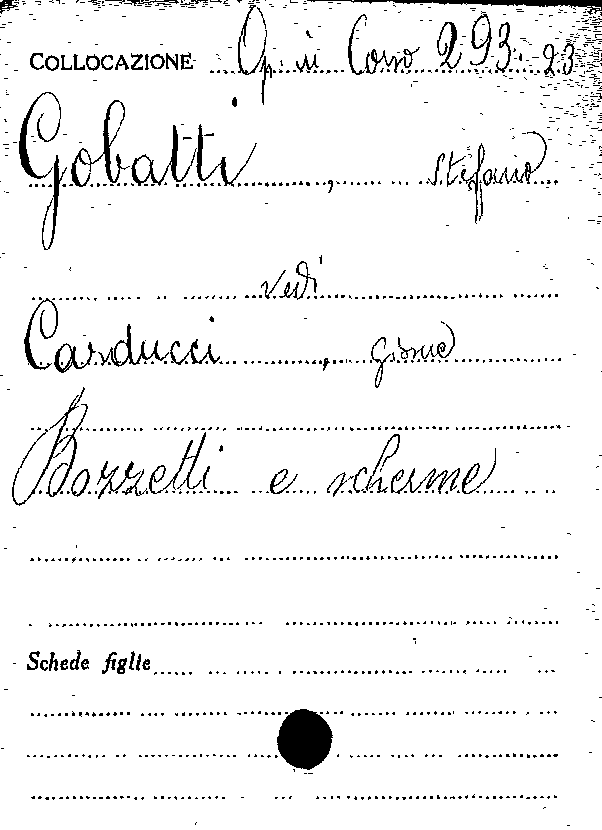 COLLOCAZIONE Op. in Corso 293. 23
Gobatti, Stefano
vedi
Carducci, Giosue
Bozzetti e scherme
Schede figlie